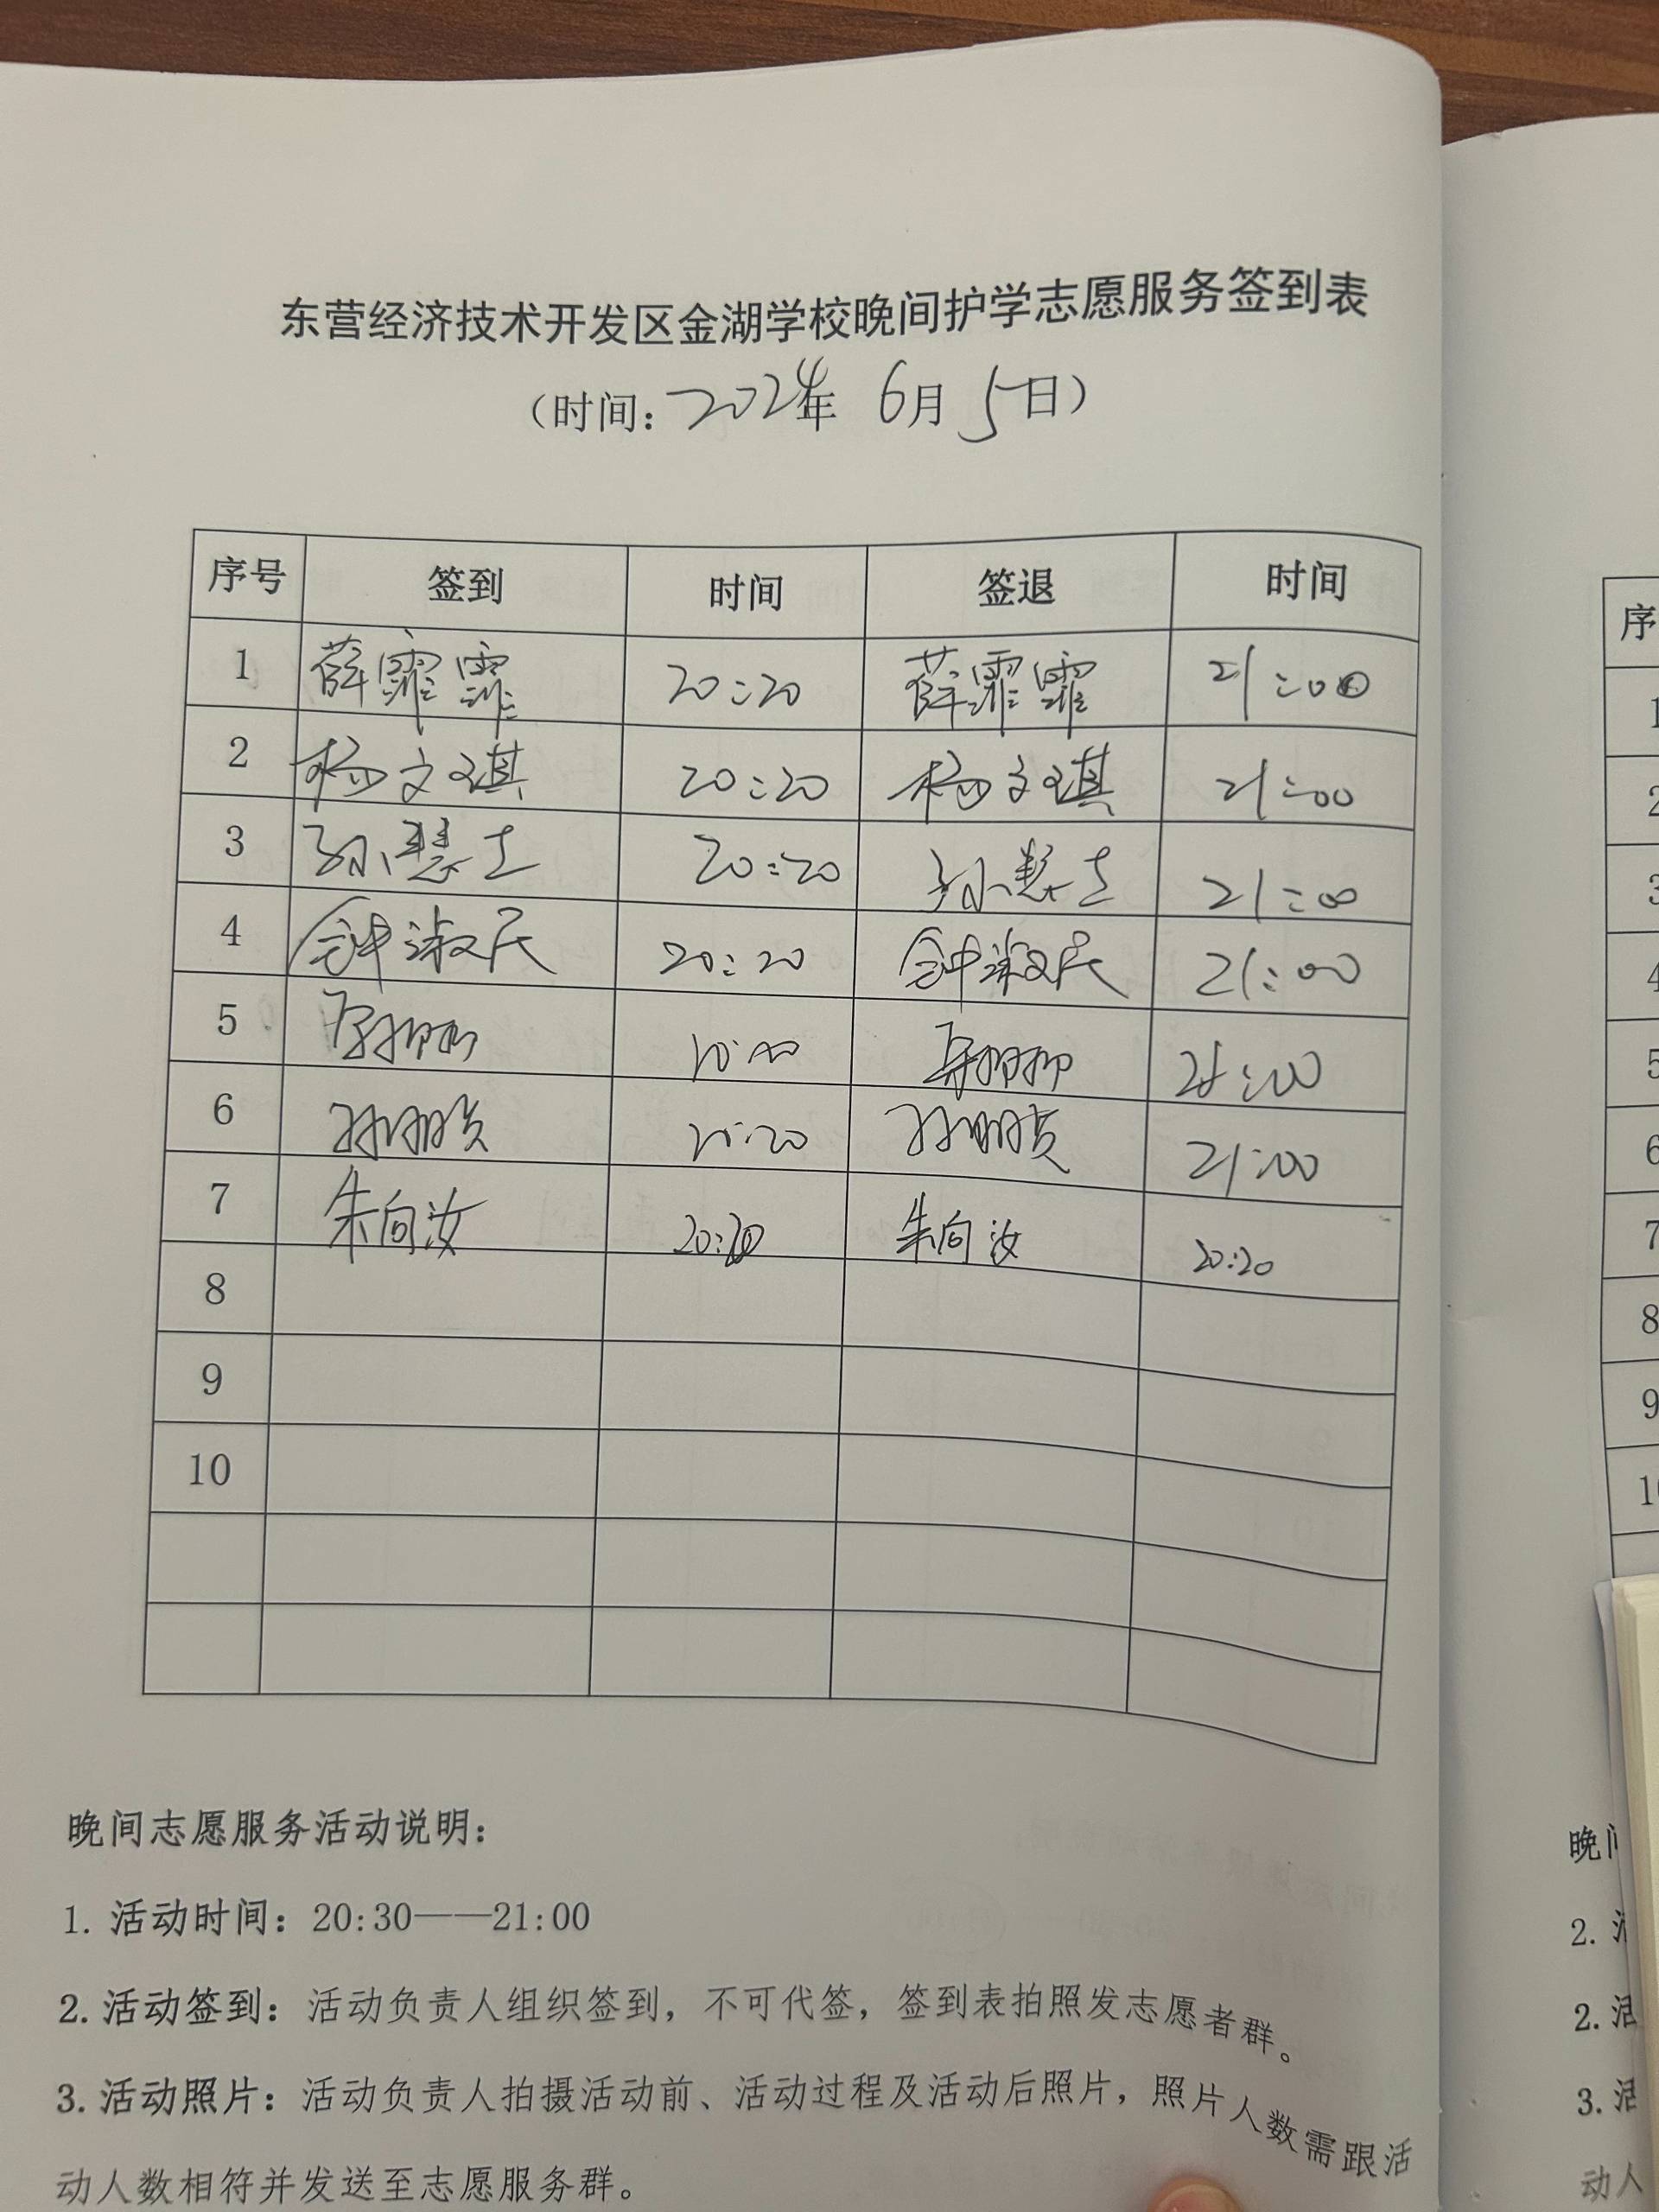 东营经济技术开发区金湖学校晚间护学志愿服务签到表
（时间：2024年 6月 5日）
序号 签到 时间 签退 时间
1 薛霏霏 20:20 薛霏霏 21:00
2 杨文琪 20:20 杨文琪 21:00
3 孙慧士 20:20 孙慧士 21:00
4 钟淑民 20:20 钟淑民 21:00
5 21:00
6 20:20 21:00
7 朱向汝 20:20 朱向汝 20:20
8
9
10
晚间志愿服务活动说明：
1. 活动时间：20:30——21:00
2. 活动签到：活动负责人组织签到，不可代签，签到表拍照发志愿者群。
3. 活动照片：活动负责人拍摄活动前、活动过程及活动后照片，照片人数需跟活
动人数相符并发送至志愿服务群。
序
1
2
3
4
5
6
7
8
9
晚
2.
2. 活
3. 活
动人